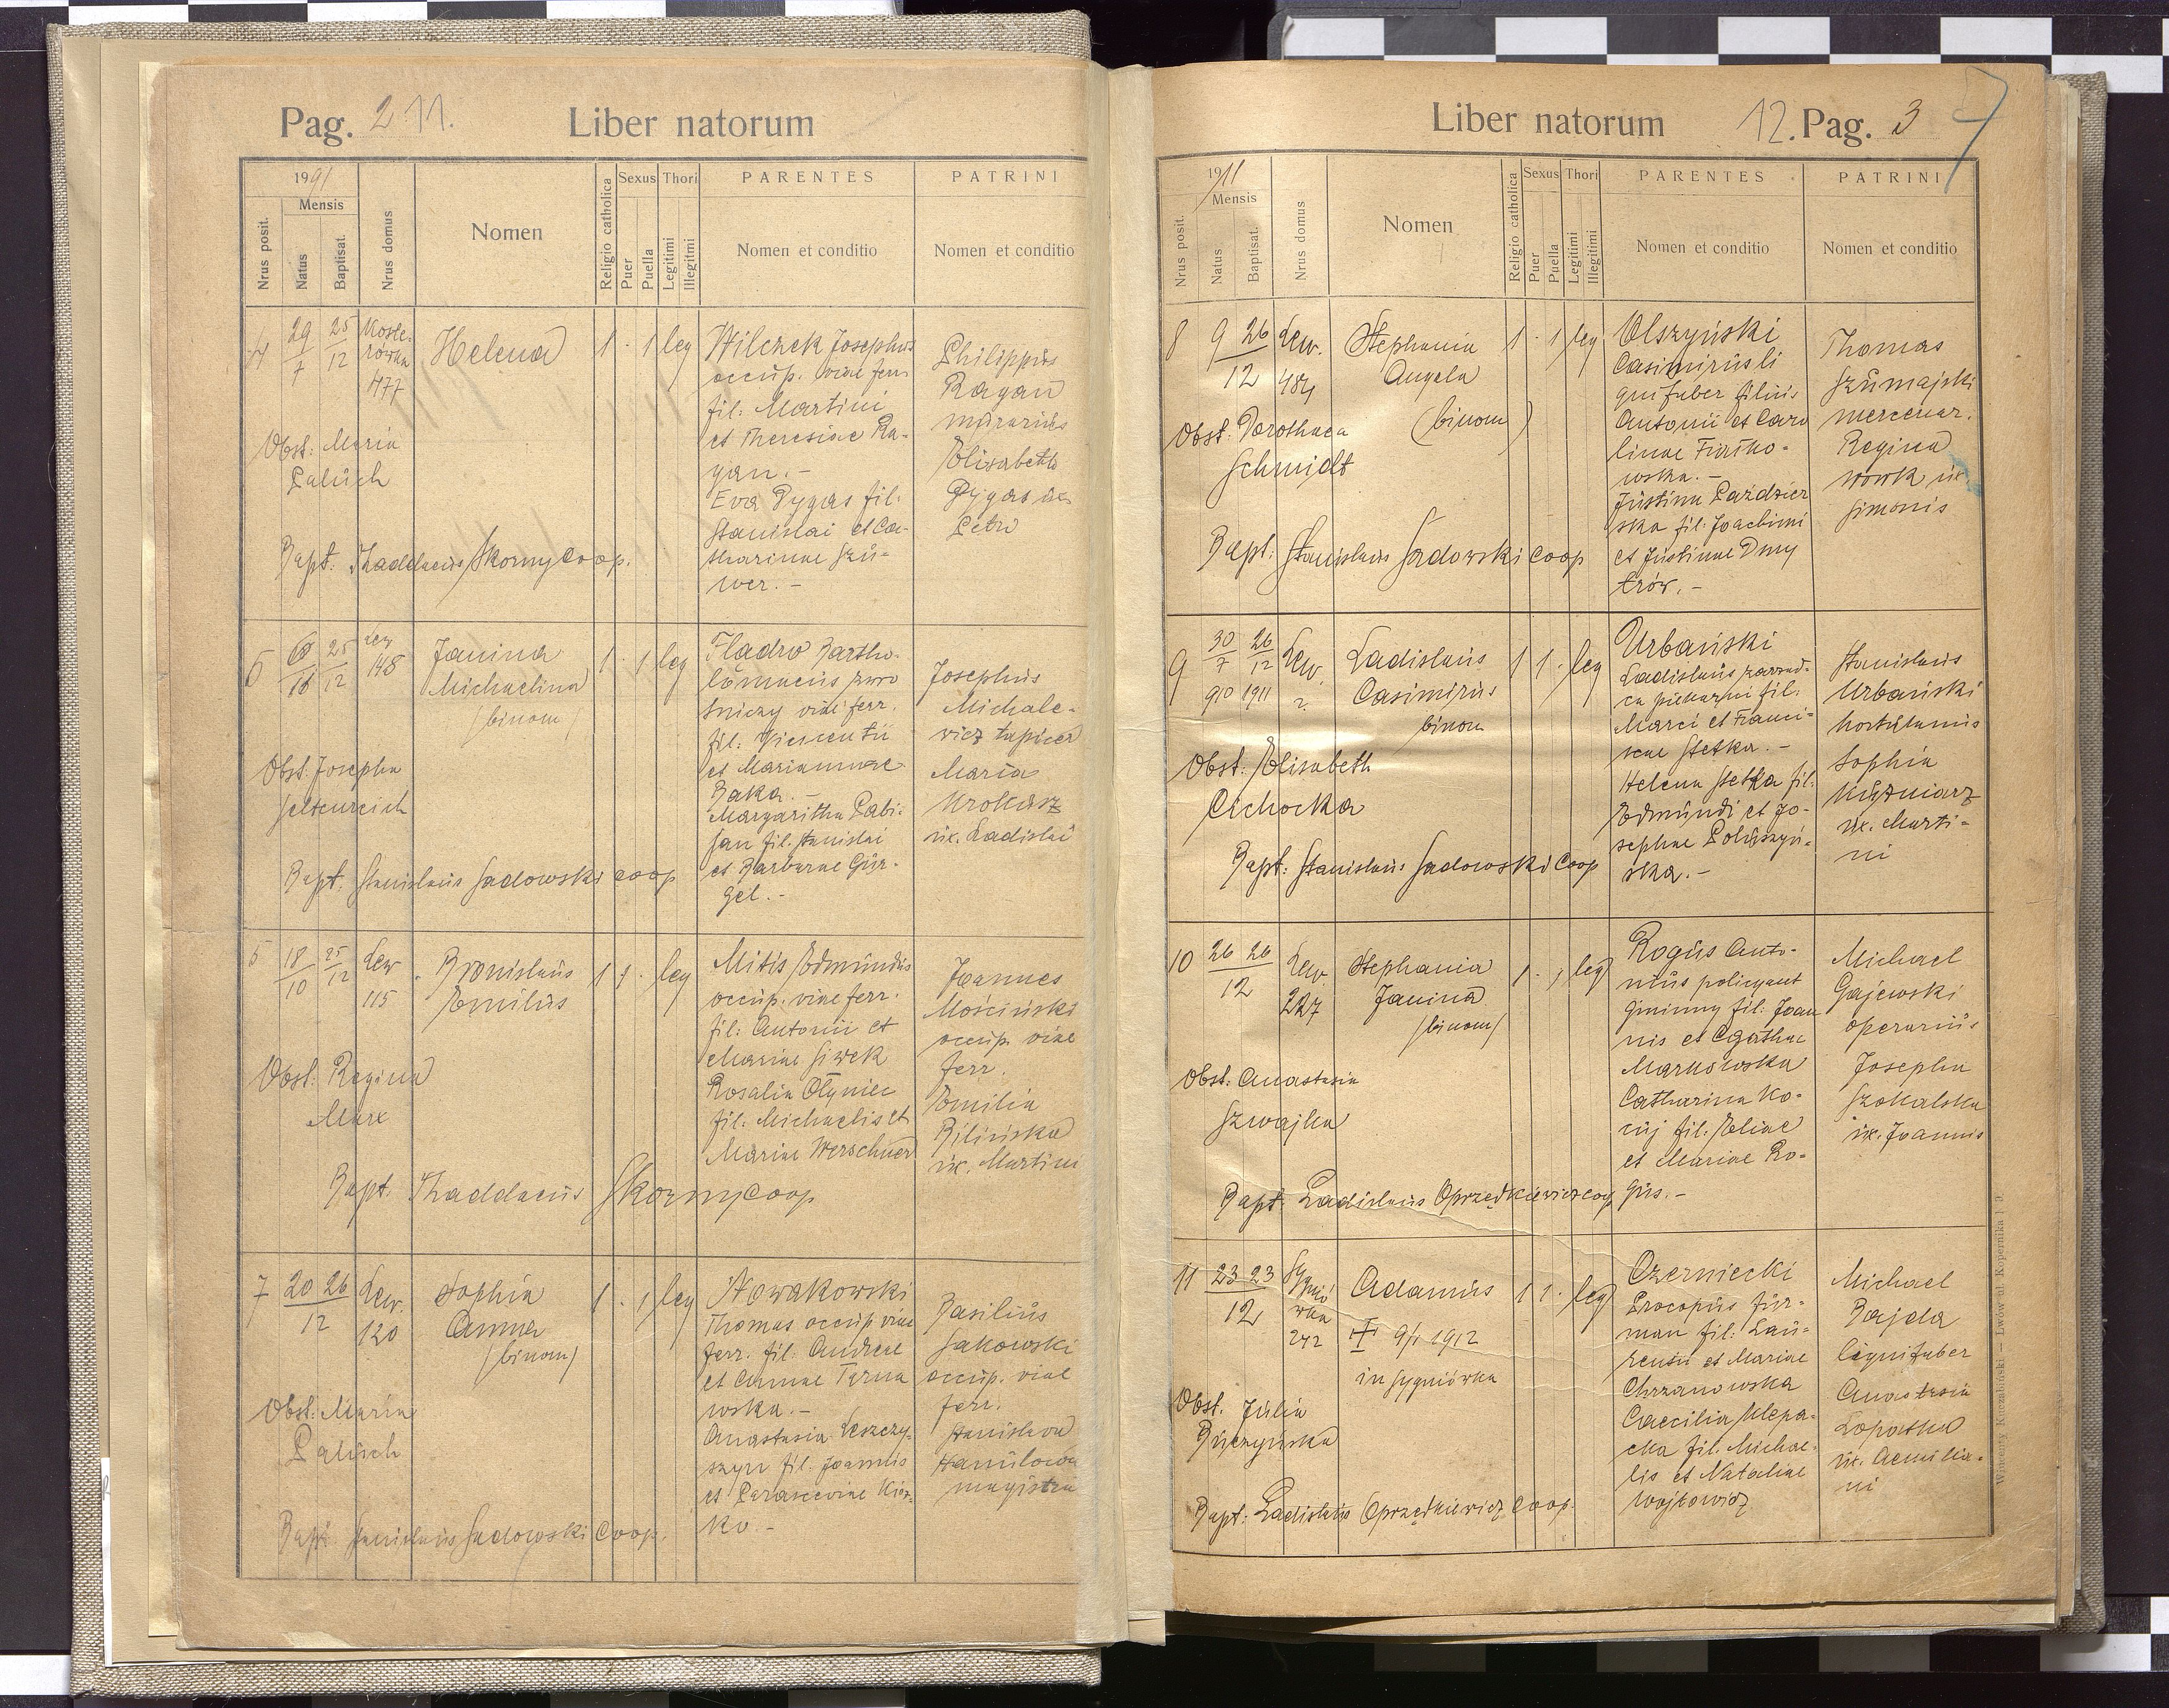 Pag. 2 11. Liber natorum
1991
Mensis
Nrus posit.
Natus
Baptisat.
Nrus domus
Nomen
Religio catholica
Sexus
Puer
Puella
Thori
Legitimi
Illegitimi
PARENTES
Nomen et conditio
PATRINI
Nomen et conditio
4 29/7 25/12 Koste-
rówka
477
Helena
1 · 1 leg
Wilczek Josephus
occup. viae ferr.
fil: Martini
et Theresiae Ra-
gan.-
Eva Pygas fil:
Stanislai et Ca-
tharinae Szu-
wer.-
Philippus
Ragan
murarius
Elisabeth
Pygas ux.
Petri
Obst: Maria
Paluch
Bapt: Thaddaeus Skorny Coop.
25/12
Lew
148
Janina
Michaelina
(binom)
1 · 1 leg
Fladro Bartho-
lomaeus
viae ferr.
fil: Vincentii
et Mariannae
Baka.-
Margaritha Pabi-
san fil. Stanislai
et Barbarae Gür-
gel.-
Josephus
Michale-
wicz tapicer
Maria
Urokasz
ux. Ladislai
Obst: Josepha
Seltenreich
Bapt. Stanislaus Sadowski coop
18/10 25/12 Lew
115
Bronislaus
Emilius
1 1 · leg
Mitis Edmundus
occup. viae ferr.
fil: Antonii et
Mariae Siwek
Rosalia Olyniec
fil. Michaelis et
Mariae Werschner
Joannes
Mościński
occup. viae
ferr.
Emilia
Bilińska
ux. Martini
Obst: Regina
Marx
Bapt. Thaddaeus Skorny Coop
7 20 26/12 Lew.
120
Sophia
Anna
(binom)
1 · 1 leg
Nowakowski
Thomas occup. viae
ferr. fil. Andreae
et Annae Tarna
wska.-
Anastasia Leszczy-
szyn fil. Joannis
et Parascevine Kicz-
ko.-
Basilius
Sakowski
occup. viae
ferr.
Stanislava
magistra
Obst: Maria
Paluch
Bapt. Stanislaus Sadowski Coop.
Liber natorum 12. Pag. 3
1911
Mensis
Nrus posit.
Natus
Baptisat.
Nrus domus
Nomen
Religio catholica
Sexus
Puer
Puella
Thori
Legitimi
Illegitimi
PARENTES
Nomen et conditio
PATRINI
Nomen et conditio
8 9 26/12 Lew.
484
Stephania
Angela
(binom)
1 · 1 leg.
Olszyński
Casimirus li
gnifaber filius
Antonii et Caro
linae
wska.-
Justina Paździer
ska fil: Joachimi
et Justinae Dmy
trów.-
Thomas
Szumajski
mercenar.
Regina
Wowk ux
Simonis
Obst: Dorothaea
Schmidt
Bapt: Stanislaus Sadowski coop
9 30/7 26/12
910 1911
Lew.
?
Ladislaus
Casimirus
binom
1 1 · leg
Urbański
Ladislaus zarząd-
ca piekarni fil:
Marci et Franci-
scae Stetka.-
Helena Stetka fil:
Edmundi et Jo-
sephae Poluszyń-
ska.-
Stanislaus
Urbański
hortulanus
Sophia
Kuźniarz
ux. Marti-
ni
Obst: Elisabeth
Cichocka
Bapt: Stanislaus Sadowski Coop
10 26 26/12 Lew.
227
Stephania
Janina
(binom)
1 · 1 leg
Rogus Anto-
nius policyant
gminny fil: Joan
nis et Agathae
Markowska
Catharina Ko-
cuj fil: Eliae
et Mariae Ro-
gus.-
Michael
Gajewski
operarius
Josepha
Szokalska
ux. Joannis
Obst: Anastasia
Szwajka
Bapt: Ladislaus Oprzędkiewicz coop
11 23 23/12 Sygnió
wka
242
Adamus
9/1 1912
in Sygniówka
1 1 · leg
Czerniecki
Procopius fur-
man fil: Lau-
rentii et Mariae
Chrzanowska
Caecilia Klepa-
cka fil: Michae-
lis et Nataliae
Wojtowicz
Michael
Bajda
lignifaber
Anastasia
Łopatka
ux. Aemilia-
ni
Obst. Julia
Buczyńska
Bapt: Ladislaus Oprzędkiewicz coop.